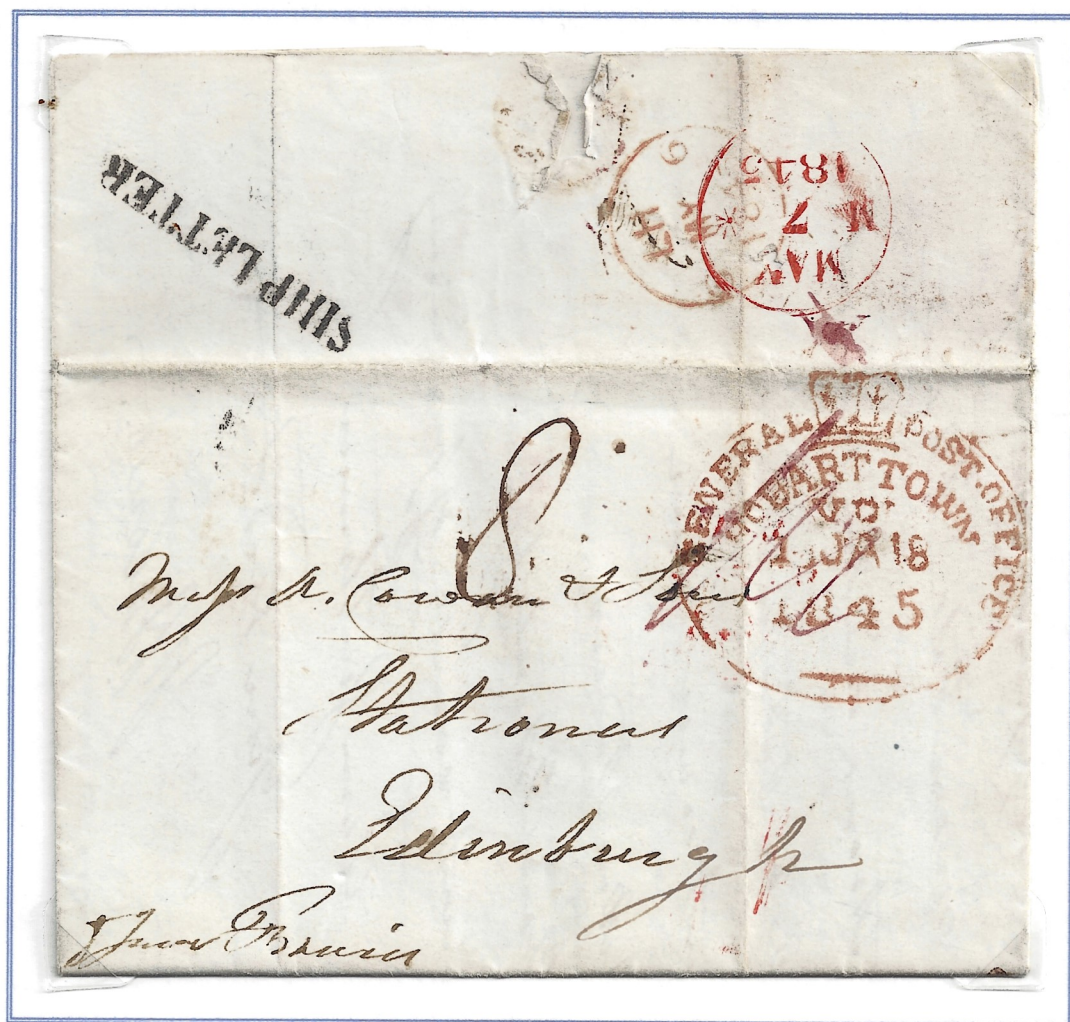 SHIP LETTER
LH
6 MY
1845
M 7
MAY
8
GENERAL POST OFFICE
HOBART TOWN
VD
1 JA 18
1845
Messrs A. Cowan & Sons
Stationers
Edinburgh